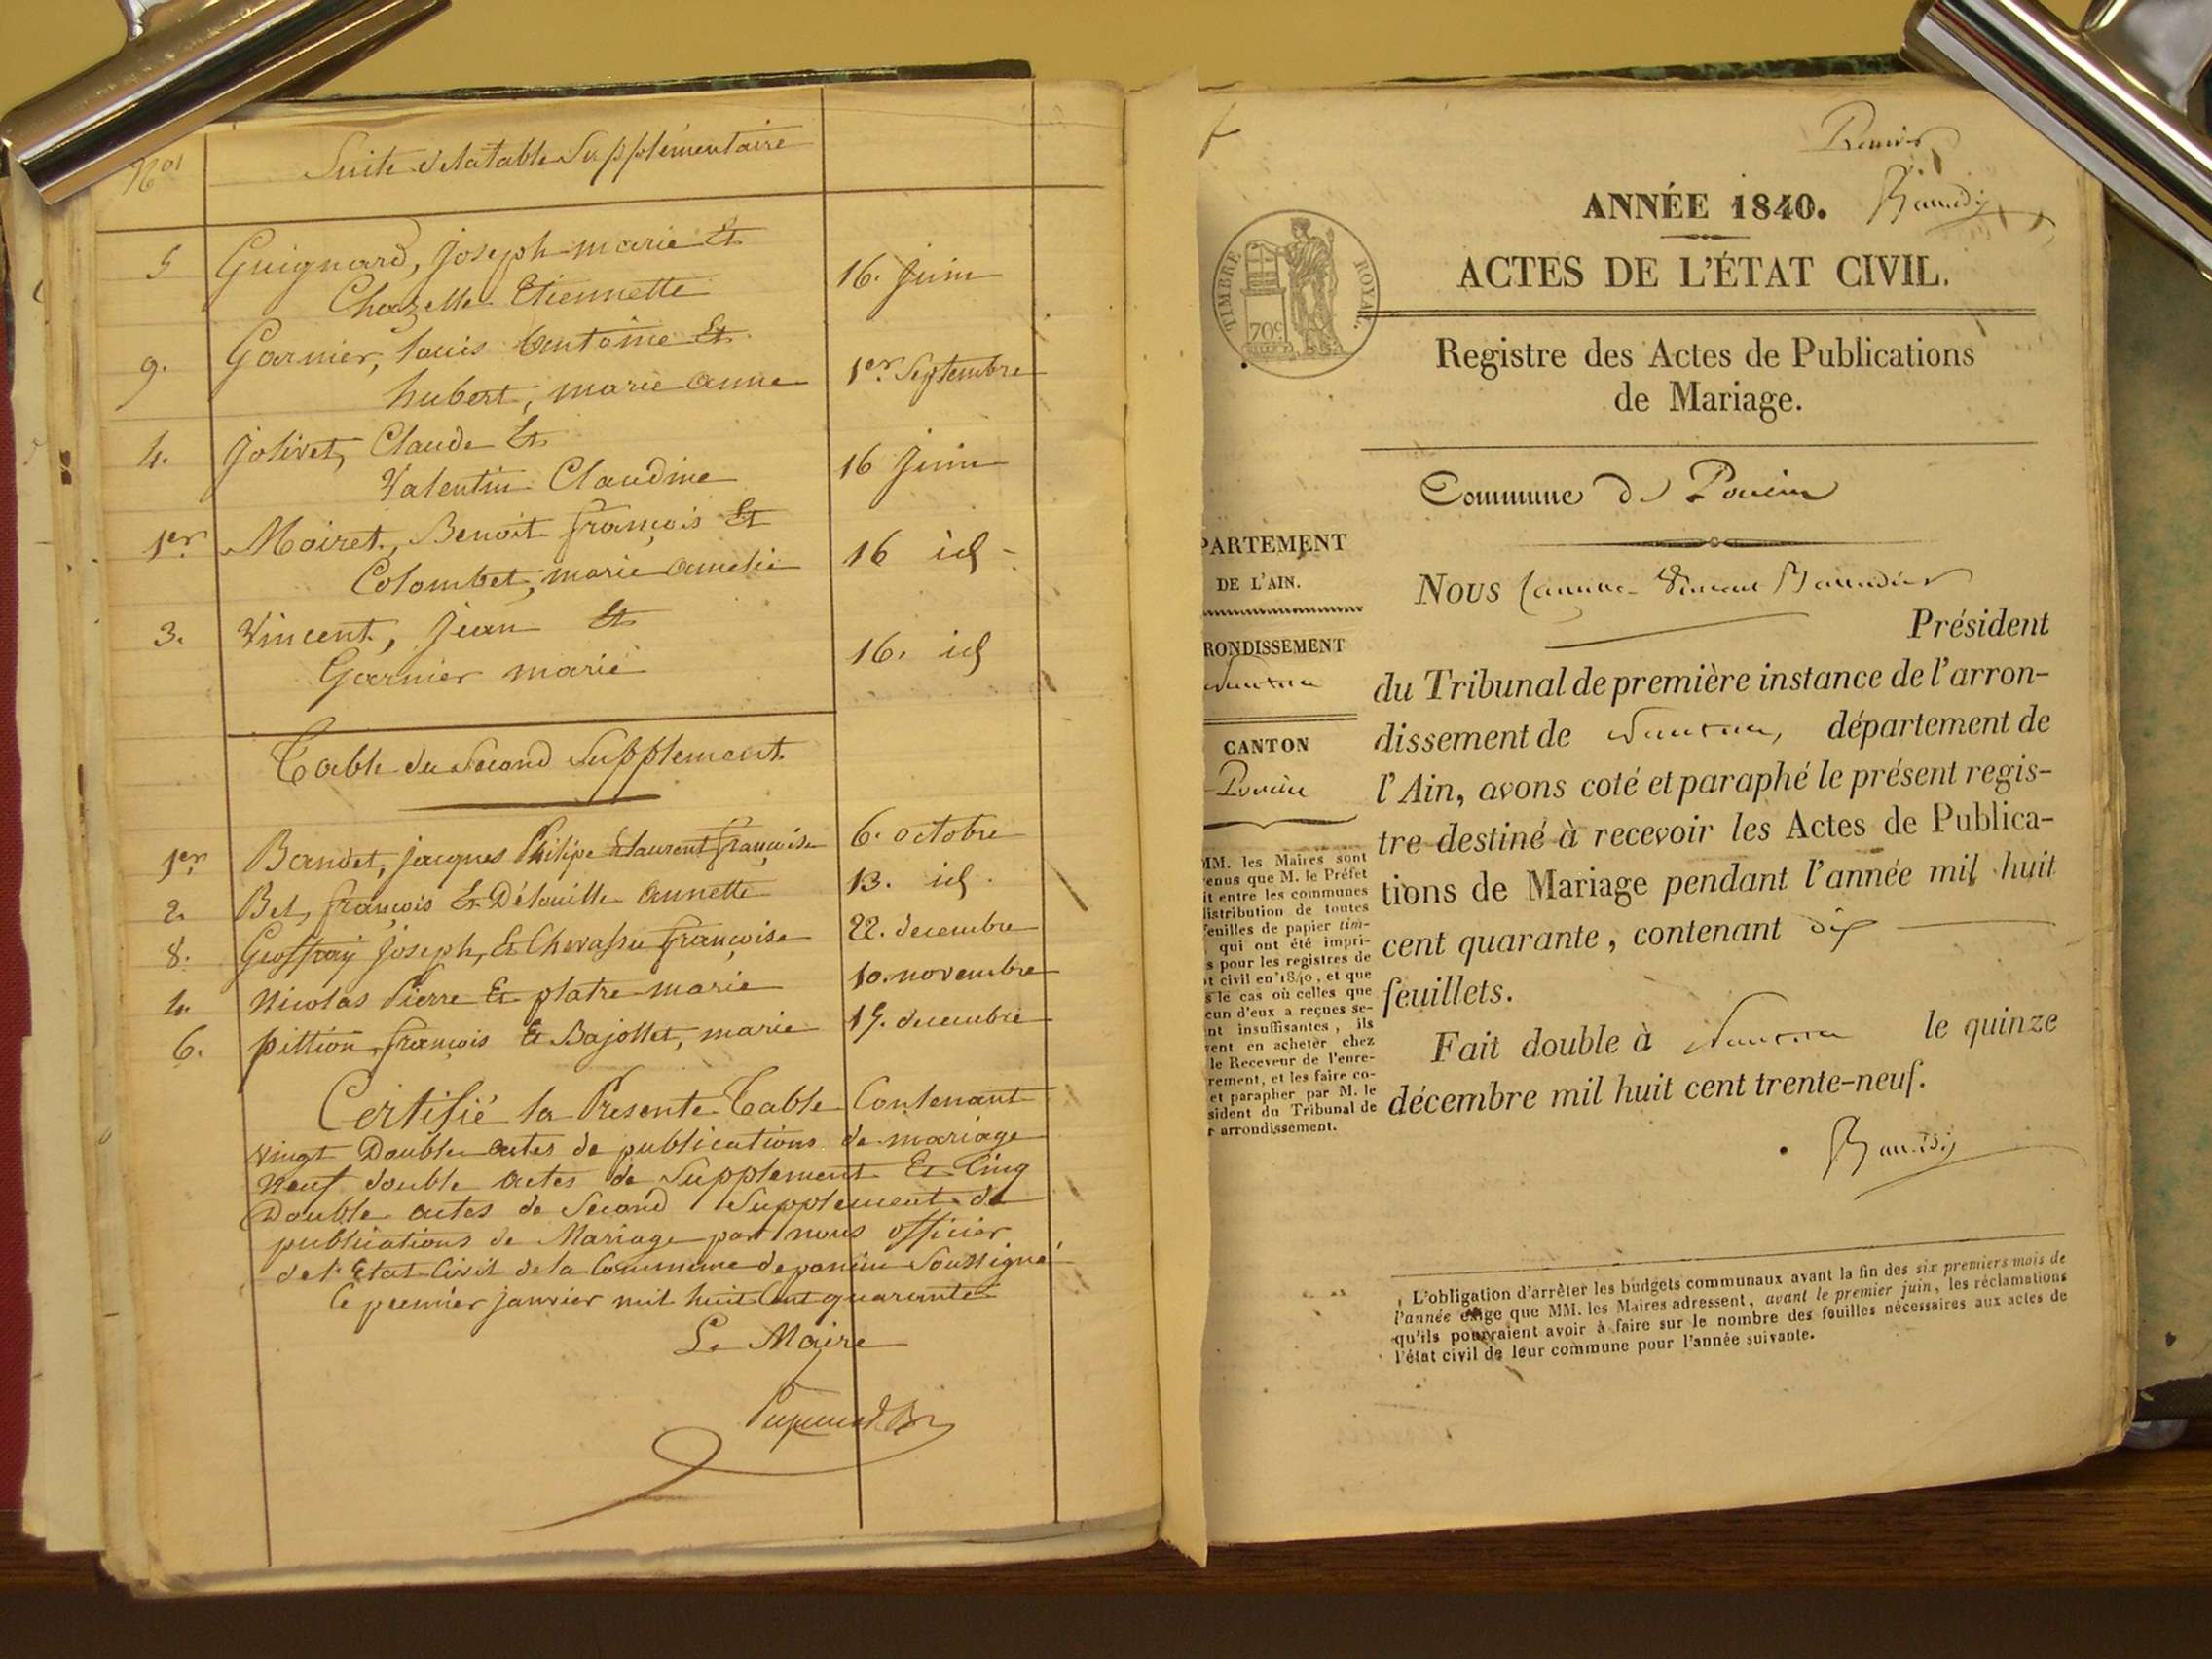 Nos
Suite de la table Supplémentaire
5 Guignard, joseph marie Et
Chazelle Etiennette 16. Juin
9. Garnier, louis Antoine Et
hubert, marie anne 1er. Septembre
4. Jolivet, Claude Et
Valentin Claudine 16 Juin
1er Moiret, Benoit françois Et
Colombet, marie amelie 16 id
3. Vincent, Jean Et
Garnier marie 16. id
Table du Second Supplement
1er Bandet, jacques Philipe & laurent françoise 6. octobre
2. Bel, françois Et Détouille annette 13. id.
8. Geoffray joseph, Et Chevassu françoise 22. decembre
4. Nicolas Pierre Et platre marie 10. novembre
6. pittion françois Et Bajollet, marie 15. decembre
Certifié la Presente Table Contenant
vingt Double actes de publications de mariage
Neuf double actes de Supplement Et Cinq
Double actes de Second Supplement de
publications de Mariage par nous officier
de l'Etat Civil de la Commune de poncin Soussigné
le premier janvier mil huit Cent quarante
Le Maire
Premier
ANNÉE 1840.
TIMBRE ROYAL.
70c
ACTES DE L'ÉTAT CIVIL.
Registre des Actes de Publications
de Mariage.
Commune de Poncin
PARTEMENT
DE L'AIN.
RONDISSEMENT
Nantua
CANTON
Poncin
MM. les Maires sont
enus que M. le Préfet
it entre les communes
listribution de toutes
feuilles de papier tim-
qui ont été impri-
s pour les registres de
t civil en 1840, et que
s le cas où celles que
cun d'eux a reçues se-
nt insuffisantes, ils
vent en acheter chez
le Receveur de l'enre-
rement, et les faire co-
et parapher par M. le
sident du Tribunal de
r arrondissement.
Nous
Président
du Tribunal de première instance de l'arron-
dissement de Nantua, département de
l'Ain, avons coté et paraphé le présent regis-
tre destiné à recevoir les Actes de Publica-
tions de Mariage pendant l'année mil huit
cent quarante, contenant dix
feuillets.
Fait double à Nantua le quinze
décembre mil huit cent trente-neuf.
L'obligation d'arrêter les budgets communaux avant la fin des six premiers mois de
l'année exige que MM. les Maires adressent, avant le premier juin, les réclamations
qu'ils pourraient avoir à faire sur le nombre des feuilles nécessaires aux actes de
l'état civil de leur commune pour l'année suivante.